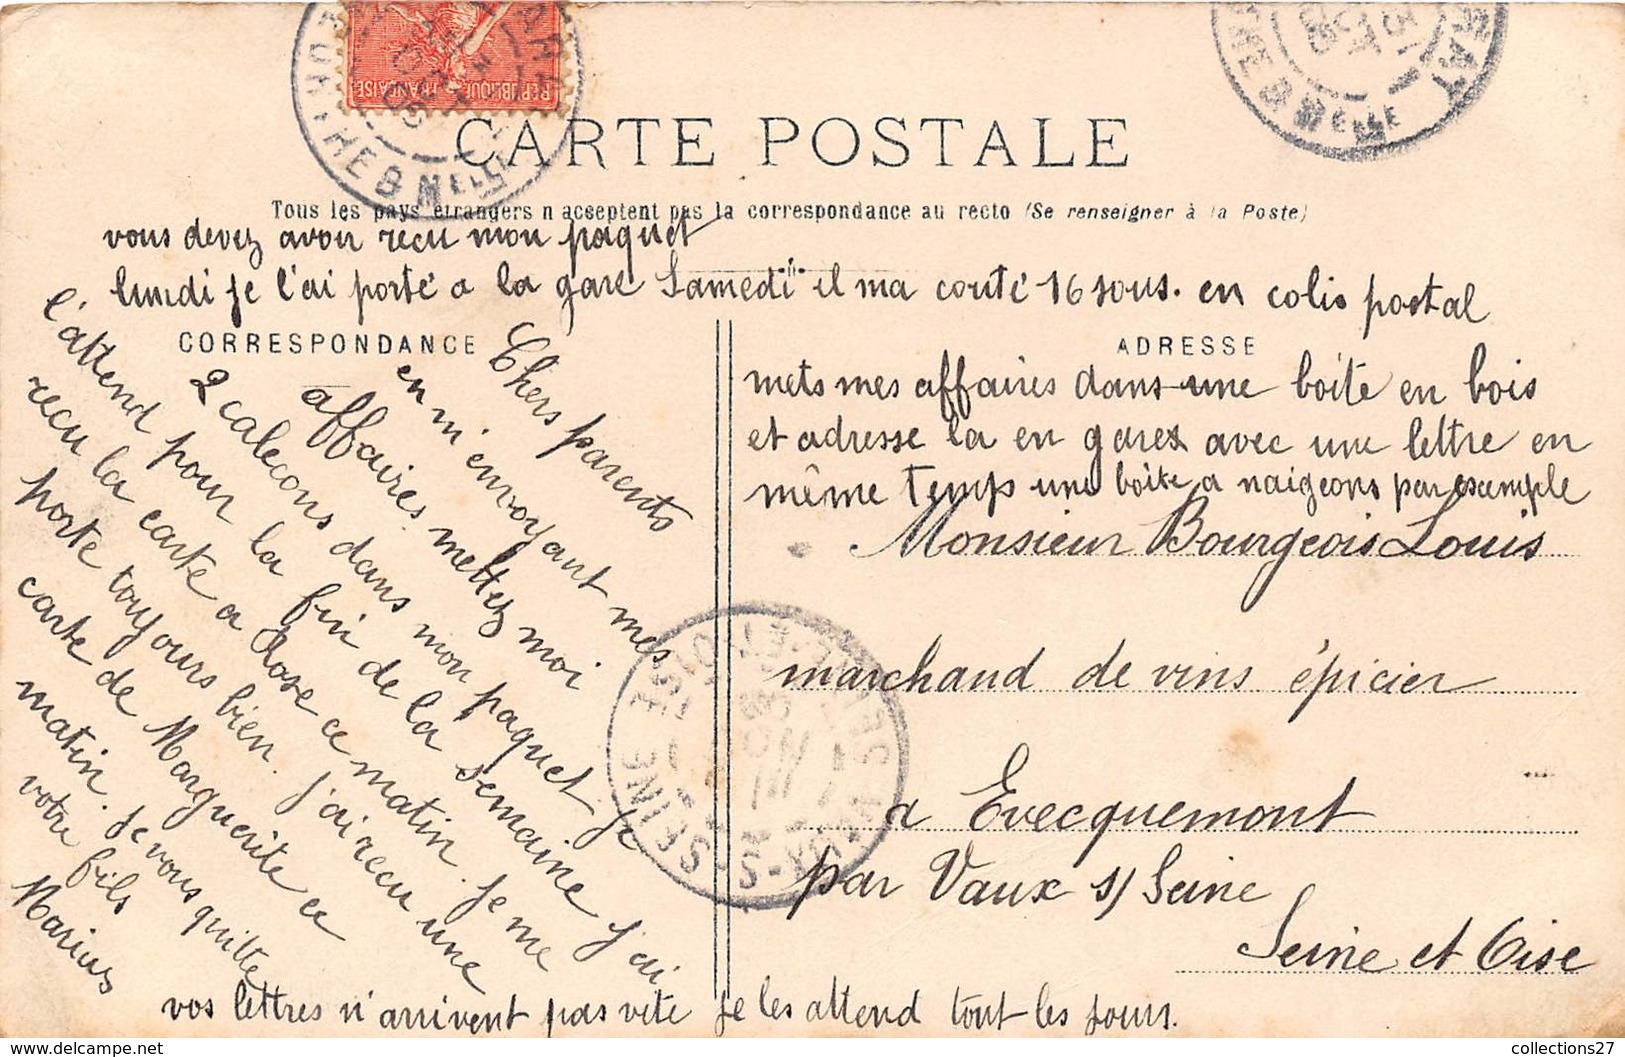 REPUBLIQUE FRANÇAISE
CARTE POSTALE
Tous les pays étrangers n'acceptent pas la correspondance au recto (Se renseigner à la Poste)
vous devez avoir recu mon paquet
lundi je l'ai porté a la gare Samedi il ma couté 16 sous. en colis postal
CORRESPONDANCE
Chers parents
en m'envoyant mes
affaires mettez moi
2 calecons dans mon paquet je
l'attend pour la fin de la semaine j'ai
recu la carte a Rose ce matin. je me
porte toujours bien. j'ai recu une
carte de Marguerite ce
matin. je vous quitte
votre fils
Marius
vos lettres n'arrivent pas vite je les attend tout les jours.
ADRESSE
mets mes affaires dans une boite en bois
et adresse la en gare avec une lettre en
même temps une boite a naigeons par exemple
Monsieur Bourgeois Louis
marchand de vins épicier
a Evecquemont
par Vaux s/ Seine
Seine et Oise
VAUX-S-SEINE
SEINE-ET-OISE
collections27